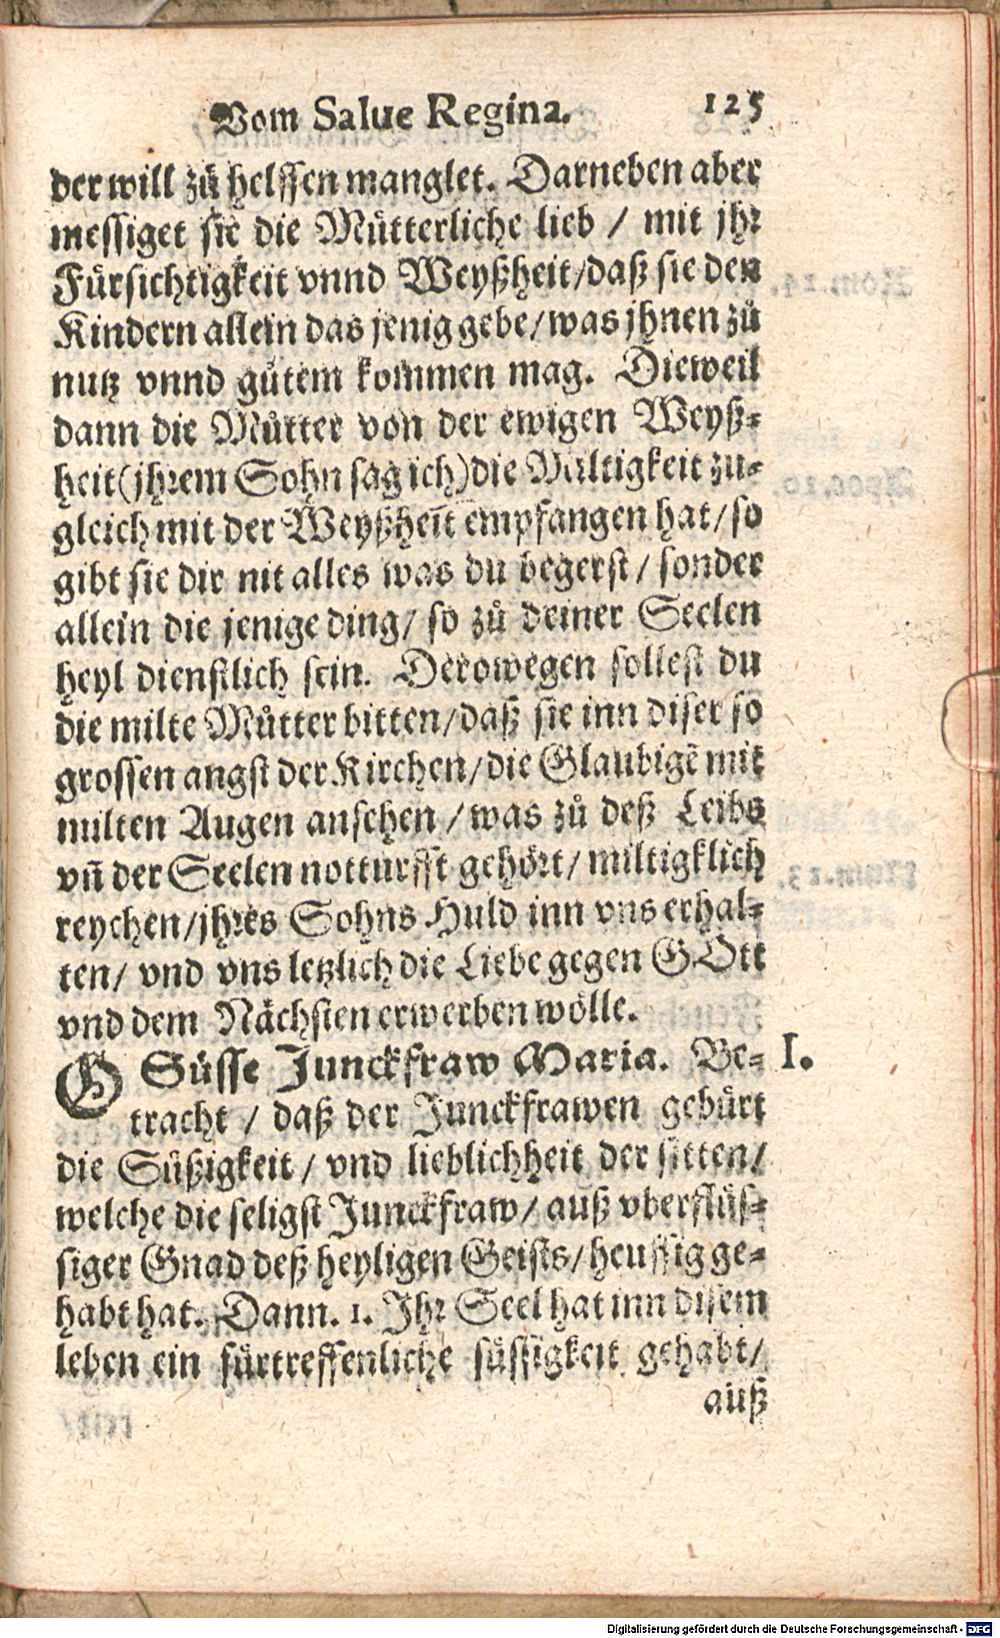 Vom Salue Regina. 125
der will zů helffen manglet. Darneben aber
messiget sie die Můtterliche lieb / mit jhr
Fürsichtigkeit vnnd Weyßheit/daß sie den
Kindern allein das jenig gebe/was jhnen zů
nutz vnnd gůtem kommen mag. Dieweil
dann die Můtter von der ewigen Weyß-
heit(jhrem Sohn sag ich)die Miltigkeit zu-
gleich mit der Weyßheit empfangen hat/so
gibt sie dir nit alles was du begerst/ sonder
allein die jenige ding/ so zů deiner Seelen
heyl dienstlich sein. Derowegen sollest du
die milte Můtter bitten/daß sie inn diser so
grossen angst der Kirchen/die Glaubigē mit
milten Augen ansehen / was zů deß Leibs
vñ der Seelen notturfft gehört/ miltigklich
reychen/jhres Sohns Huld inn vns erhal-
ten/ vnd vns letzlich die Liebe gegen GOtt
vnd dem Nächsten erwerben wölle.
O Süsse Junckfraw Maria. Be- I.
tracht / daß der Junckfrawen gebürt
die Süßigkeit / vnd lieblichheit der sitten/
welche die seligst Junckfraw/ auß vberflüs-
siger Gnad deß heyligen Geists/heuffig ge-
habt hat. Dann. 1. Jhr Seel hat inn disem
leben ein fürtreffenliche süssigkeit gehabt/
auß
Digitalisierung gefördert durch die Deutsche Forschungsgemeinschaft - DFG